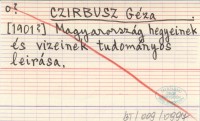 CZIRBUSZ Géza
[1901?] Magyarország hegyeinek
és vizeinek tudományos
leirása.